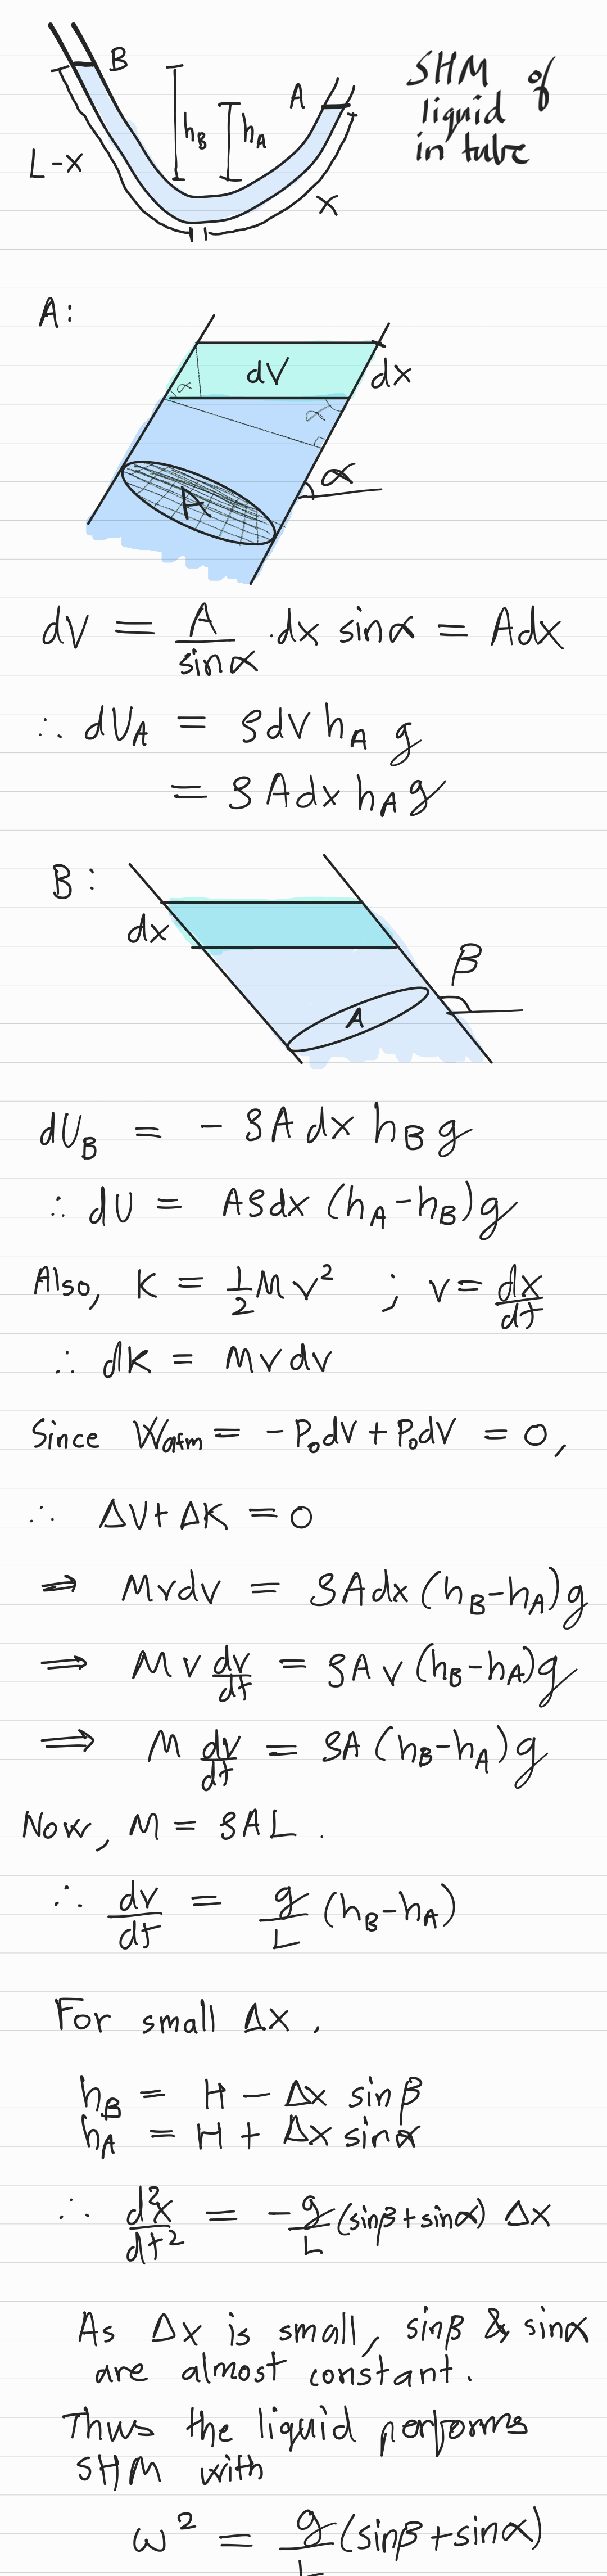 SHM of
liquid
in tube
B
A
h_B
h_A
L-x
x
A:
dV
dx
α
α
α
A
dV = A/sinα · dx sinα = Adx
∴ dU_A = ρdV h_A g
= ρAdx h_A g
B:
dx
β
A
dU_B = - ρA dx h_B g
∴ dU = Aρdx (h_A-h_B)g
Also, K = 1/2 Mv² ; v = dx/dt
∴ dK = Mvdv
Since W_atm = - P₀dV + P₀dV = 0,
∴ ΔU + ΔK = 0
⇒ Mvdv = ρAdx (h_B-h_A)g
⇒ Mv dv/dt = ρAv (h_B-h_A)g
⇒ M dv/dt = ρA (h_B-h_A)g
Now, M = ρAL.
∴ dv/dt = g/L (h_B-h_A)
For small Δx,
h_B = H - Δx sinβ
h_A = H + Δx sinα
∴ d²x/dt² = -g/L (sinβ+sinα) Δx
As Δx is small, sinβ & sinα
are almost constant.
Thus the liquid performs
SHM with
ω² = g/L (sinβ+sinα)